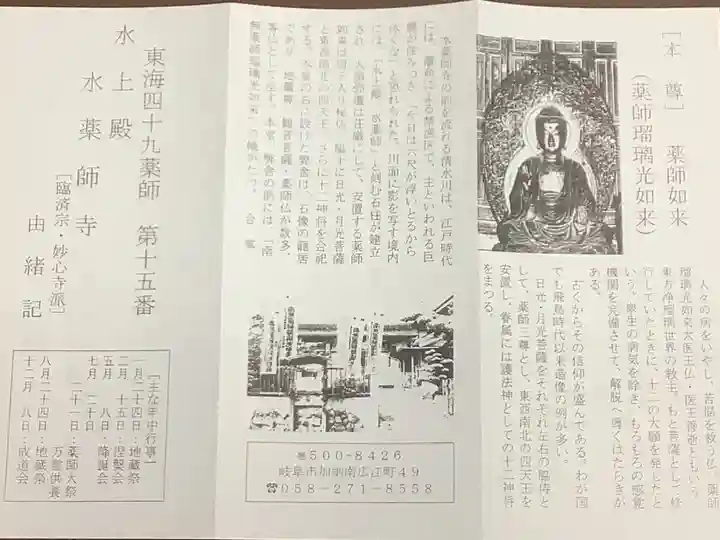 ［本 尊］ 薬師如来
（薬師瑠璃光如来）
人々の病をいやし、苦悩を救う仏。薬師
瑠璃光如来大医王仏・医王善逝ともいう。
東方浄瑠璃世界の教主。もと菩薩として修
行していたときに、十二の大願を発したと
いう。衆生の病気を除き、もろもろの感覚
機関を完備させて、解脱へ導くはたらきが
ある。
古くからその信仰が盛んである。わが国
でも飛鳥時代以来造像の例が多い。
日光・月光菩薩をそれぞれ左右の脇侍と
して、薬師三尊とし、東西南北の四天王を
安置し、眷属には護法神としての十二神将
をまつる。
水薬師寺の前を流れる清水川は、江戸時代
には、藩命による禁漁区で、主といわれる巨
鯉が住みつき、「今日は
には、「水上殿 水薬師」と刻む石柱が建立
され、
如来は
と東西南北の四天王、さらに十二神将を合祀
する。本堂の右に設けた
であり、地蔵尊・観音菩薩・薬師仏が数多、
客仏として座す。本堂・
無薬師瑠璃光如来」の幟がたつ。 合 掌
〒500-8426
岐阜市加納南広江町49
☎058-271-8558
東海四十九薬師 第十五番
水上殿
水薬師寺
［臨済宗・妙心寺派］
由緒記
［主な年中行事］
一月二十四日：地蔵祭
二月 十五日：涅槃会
五月 八日：降誕会
七月 二十日
二十一日：薬師大祭
万燈供養
八月二十四日：地蔵祭
十二月 八日：成道会